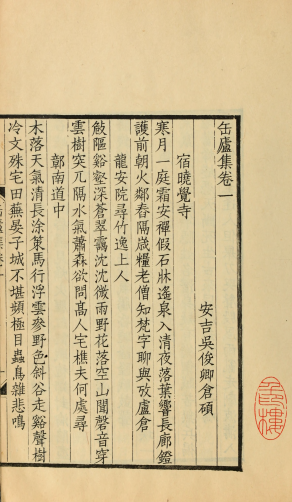 缶廬集卷一
安吉吳俊卿倉碩
宿曉覺寺
寒月一庭霜安禪假石牀遙泉入清夜落葉響長廊鐙
護前朝火鄰舂隔歲糧老僧知梵字聊與攷盧倉
龍安院尋竹逸上人
敧𨺗谿壑深蒼翠靄沈沈微雨野花落空山聞磬音穿
雲樹突兀隔水氣蕭森欲問高人宅樵夫何處尋
鄣南道中
木落天氣清長涂策馬行浮雲參野色斜谷走谿聲樹
冷文殊宅田蕪晏子城不堪頻極目蟲鳥雜悲鳴